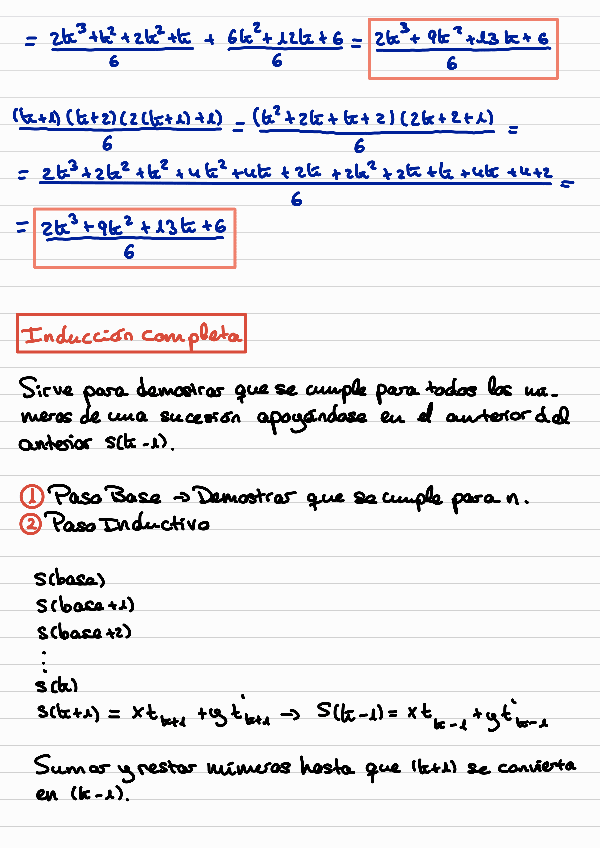 = (2k³+k²+2k²+k)/6 + (6k²+12k+6)/6 = (2k³+9k²+13k+6)/6
((k+1)(k+2)(2(k+1)+1))/6 = ((k²+2k+k+2)(2k+2+1))/6 =
= (2k³+2k²+k²+4k²+4k+2k+2k²+2k+k+4k+4+2)/6 =
= (2k³+9k²+13k+6)/6
Inducción completa
Sirve para demostrar que se cumple para todos los nú-
meros de una sucesión apoyándose en el anterior del
anterior S(k-1).
① Paso Base → Demostrar que se cumple para n.
② Paso Inductivo
S(base)
S(base+1)
S(base+2)
⋮
S(k)
S(k+1) = xt_{k+1} + yt'_{k+1} → S(k-1) = xt_{k-1} + yt'_{k-1}
Sumar y restar números hasta que (k+1) se convierta
en (k-1).